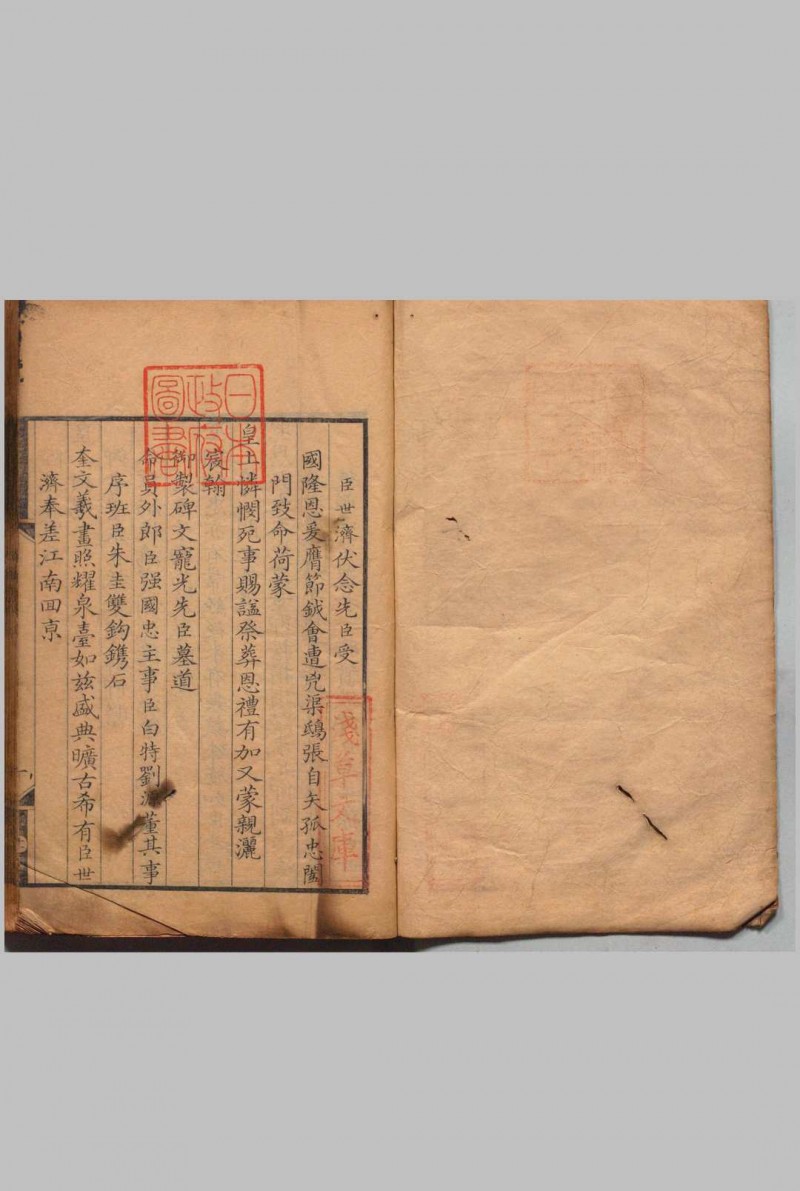 臣世濟伏念先臣受
國隆恩爰膺節鉞會遭兇渠鴟張自矢孤忠闔
門致命荷蒙
皇上憐憫死事賜諡祭葬恩禮有加又蒙親灑
宸翰
御製碑文寵光先臣墓道
命員外郎臣强國忠主事臣白特劉源董其事
序班臣朱圭雙鈎鐫石
奎文羲畫照耀泉臺如兹盛典曠古希有臣世
濟奉差江南回京
日本
政府
圖書
淺草文庫